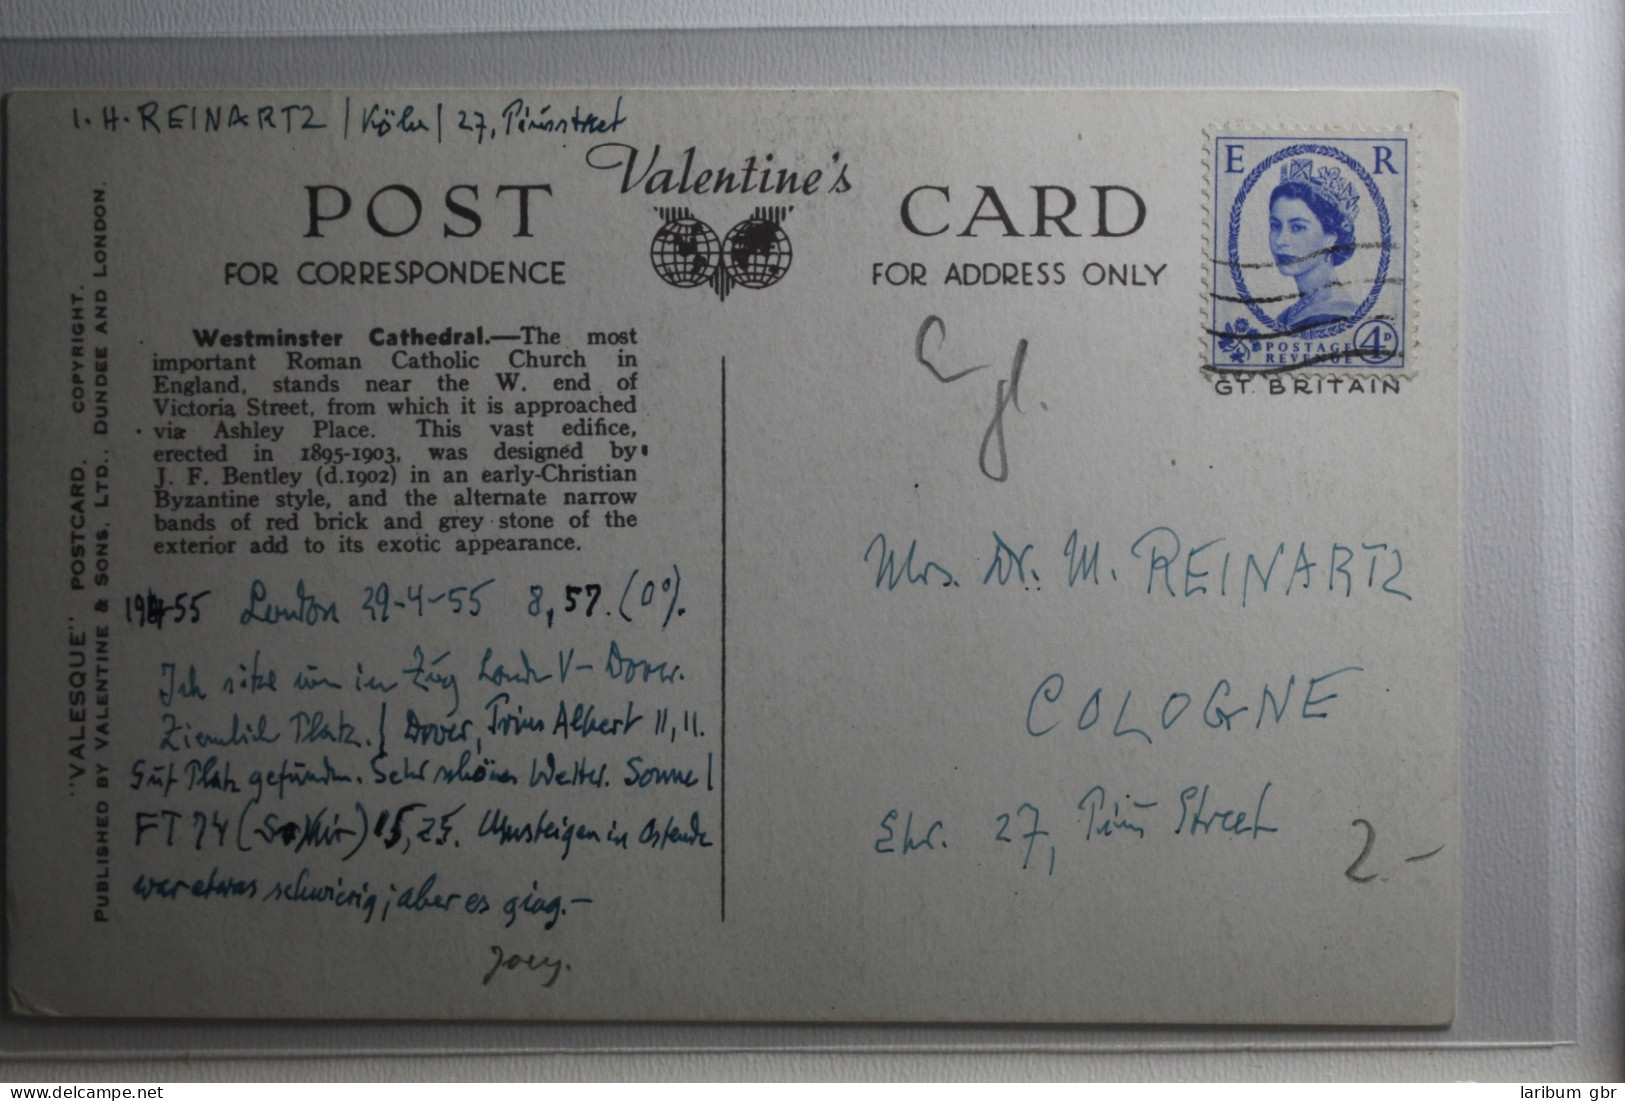 I. H. REINARTZ / Köln / 27, Piusstreet
Valentine's
POST CARD
FOR CORRESPONDENCE
FOR ADDRESS ONLY
E R
POSTAGE
REVENUE
4D
GT. BRITAIN
"VALESQUE" POSTCARD. COPYRIGHT.
PUBLISHED BY VALENTINE & SONS, LTD., DUNDEE AND LONDON.
Westminster Cathedral.—The most
important Roman Catholic Church in
England, stands near the W. end of
Victoria Street, from which it is approached
via Ashley Place. This vast edifice,
erected in 1895-1903, was designed by
J. F. Bentley (d.1902) in an early-Christian
Byzantine style, and the alternate narrow
bands of red brick and grey stone of the
exterior add to its exotic appearance.
London 29-4-55 8,57. (0%).
Ich sitze nun in Zug London V - Dover.
Ziemlich Platz. / Dover, Prins Albert II, 11.
Gut Platz gefunden. Sehr schönes Wetter. Sonne!
FT 74 15,25. Umsteigen in Ostende
war etwas schwierig; aber es ging.-
Engl.
Mrs. Dr. M. REINARTZ
COLOGNE
Ehr. 27, Pius Street
2.-
laribum gbr